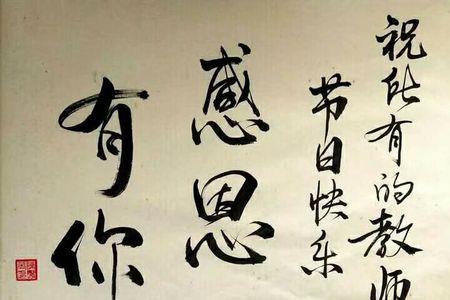 祝所有的教师
节日快乐
感恩
有你